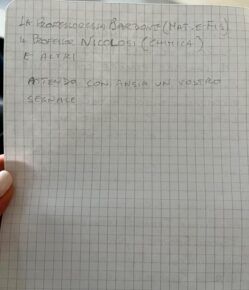 LA PROFESSORESSA BARDONE (MAT. E FIS)
IL PROFESSOR NICOLOSI (CHIMICA)
E ALTRI
ATTENDO CON ANSIA UN VOSTRO
SEGNALE